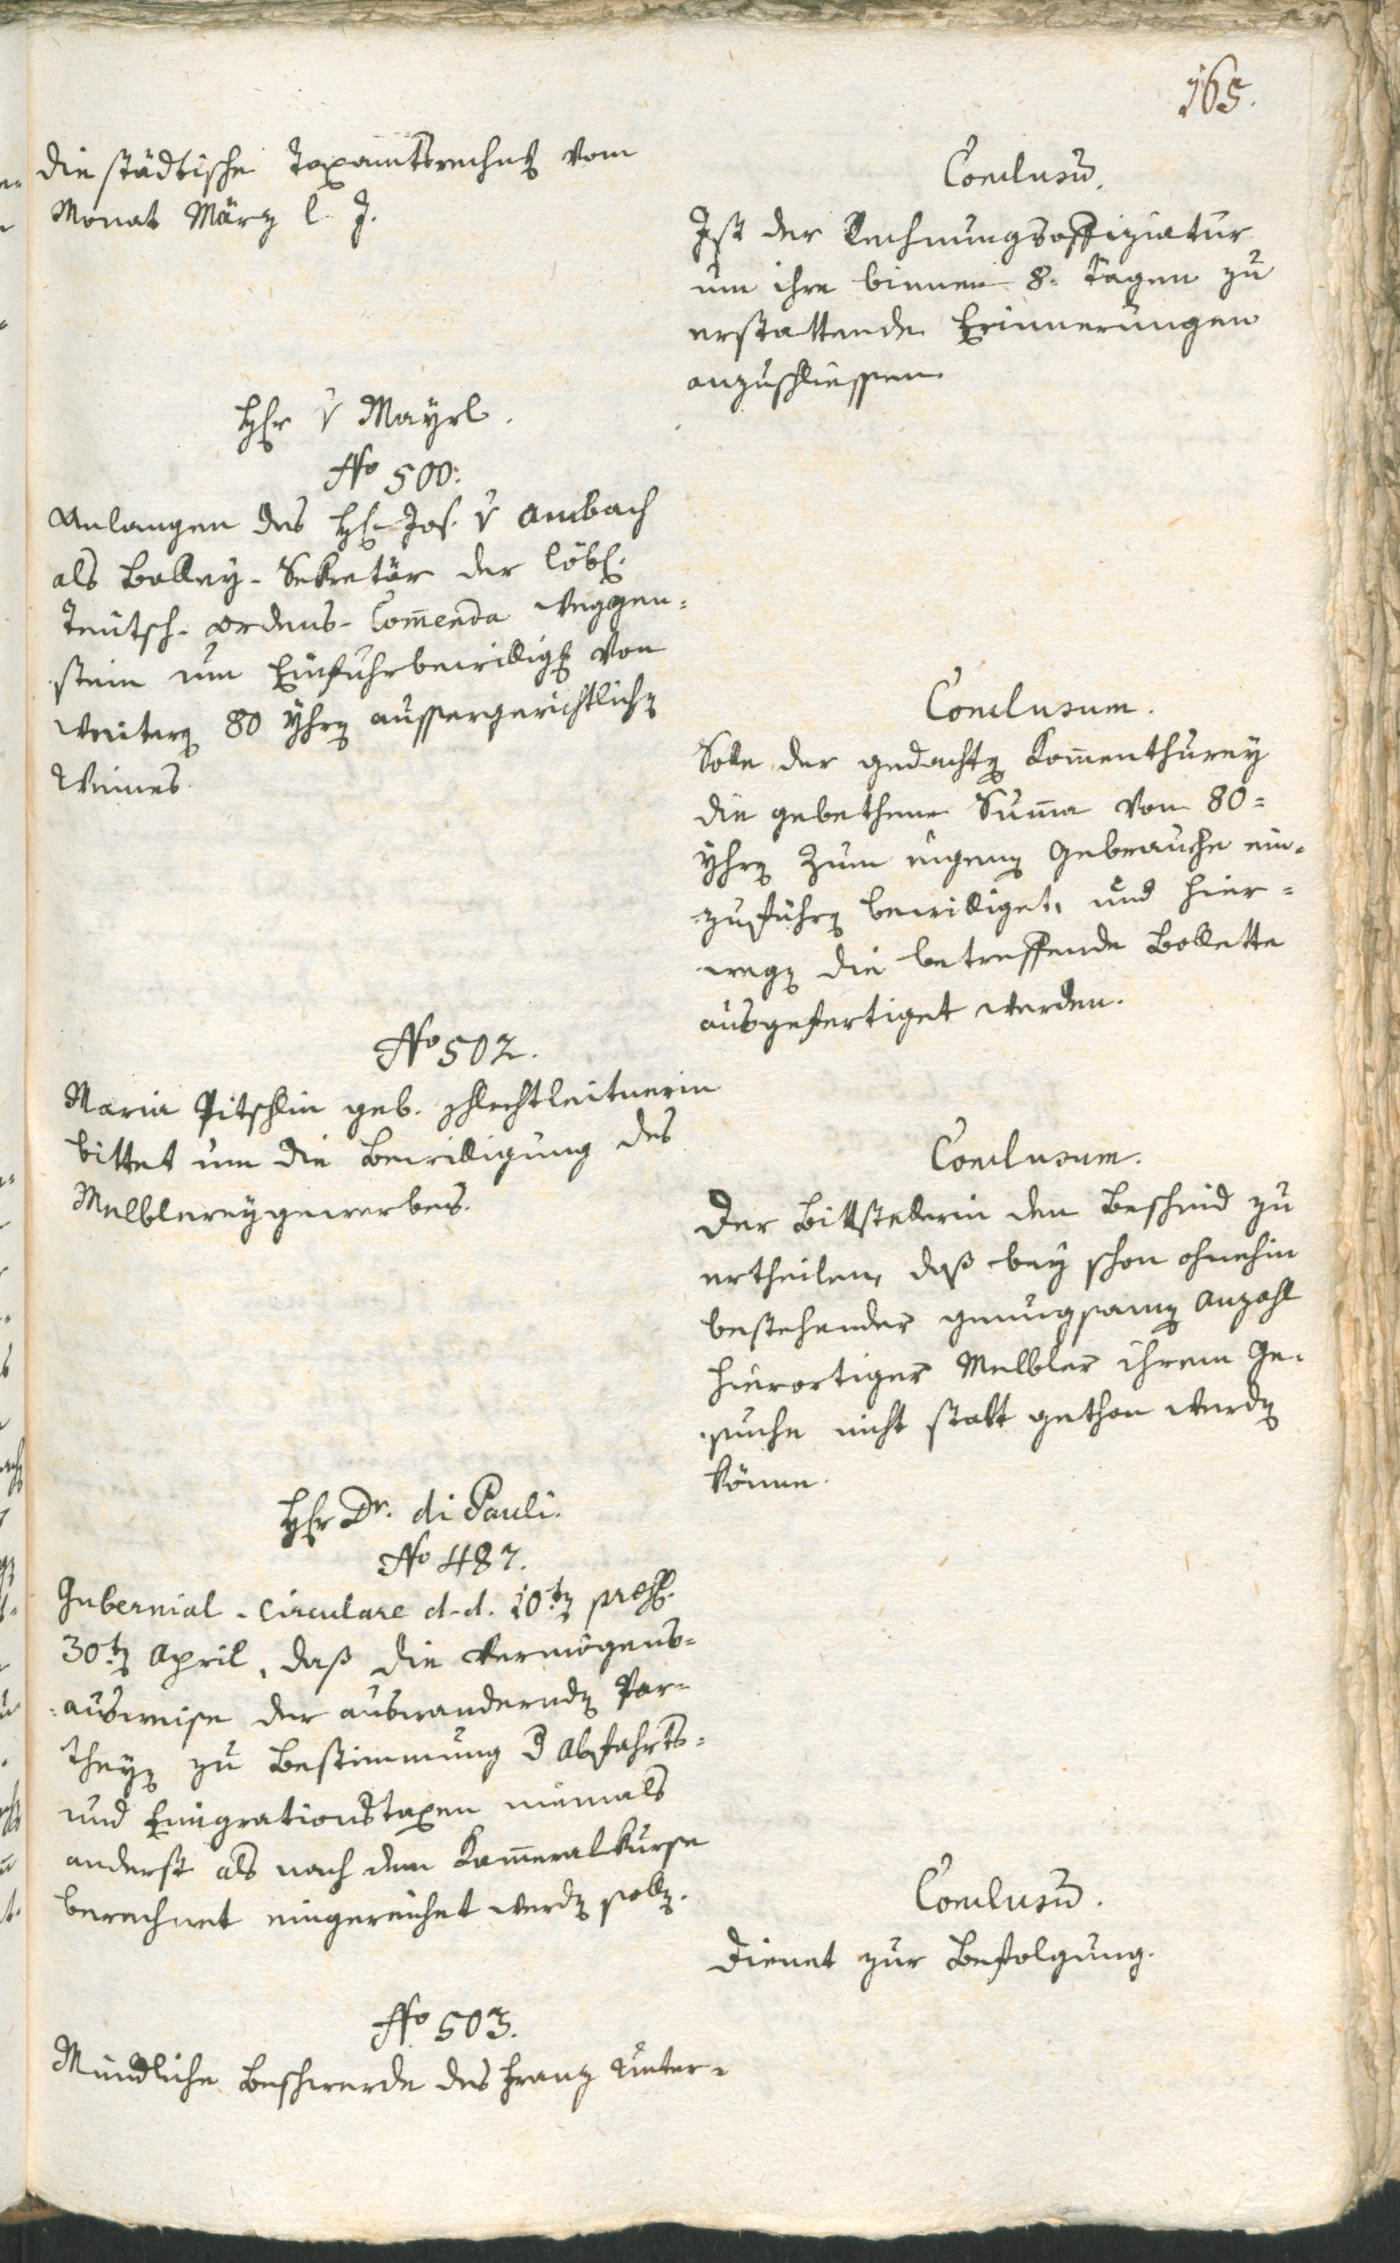 165.
die städtische Taxamtsrechng vom
Monat März l. J.
Conclusum.
Ist der Rechnungsoffiziatur
um ihre binnen 8. Tagen zu
erstattende Erinnerungen
anzuschliessen
Hr v Mayrl.
No 500.
Anlangen des H. Jos. v Ambach
als Balley-Sekretär der löbl.
Teutsch-Ordens-Commenda Weggen=
stein um Einfuhrbewilligg von
weitern 80 Yhrn aussergerichtlichen
Weines
Conclusum.
Solle der gedachten Kommenthurey
die gebethene Summa von 80=
Yhrn zum eigenen Gebrauche ein=
zuführen bewilliget, und hier=
wegen die betreffende Bollette
ausgefertiget werden.
No 502.
Maria Pitschlin geb. Schlechtleitnerin
bittet um die Bewilligung des
Melblereygewerbes.
Conclusum.
Der Bittstellerin den Bescheid zu
ertheilen, daß bey schon ohnehin
bestehender genugsamen Anzahl
hierortiger Melbler ihrem Ge=
suche nicht statt gethan werden
könne.
Hr Dr. di Pauli.
No 487.
Gubernial-Circulare d.d. 10ten praes.
30ten April, daß die Vermögens=
=ausweise der auswandernden Par=
theyen zu Bestimmung d Abfahrts=
und Emigrationstaxen niemals
anderst als nach dem Kammeralkurse
berechnet eingereichet werden sollen.
Conclusum.
Dienet zur Befolgung.
No 503.
Mündliche Beschwerde des Franz Unter=